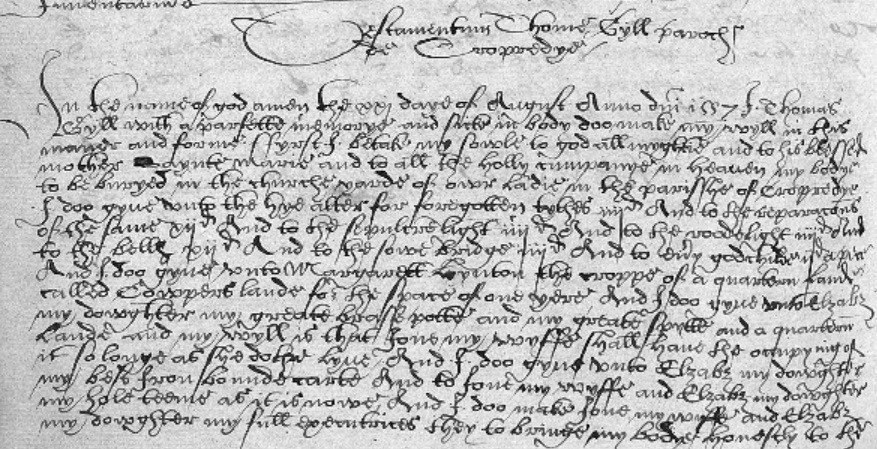 Inventarium
Testamentum Thome Gyll paroch
de Cropredye
In the name of god amen the xxi daye of August Anno dni 1557 I Thomas
Gyll with a parfette memorye and sicke in body doo make my wyll in this
maner and forme. Fyrst I betake my sowle to god all myghtie and to his blessed
mother Saynte Marie and to all the holly cumpanye in heaven my bodye
to be buryed in the churche yarde of owr ladie in the parisshe of Cropredye
I doo gyve unto the hye alter for foregotten tythes iiiid And to the reparacons
of the same xiid And to the sepulcre light iiiid And to the roodelight iiiid And
to the bells xiid And to the sowe bridge iiiid And to every godchilde a
And I doo gyve unto Margarett Lynton the croppe of a quartern lande
called Cowpers lande for the space of one yere And I doo gyve unto Elzabz
my dowghter my greate brasse potte and my greate spytte and a quartern
lande and my wyll is that Jone my wyffe shall have the occupying of
it so longe as she dothe lyve And I doo gyve unto Elzabz my dowghter
my best Iron bounde carte And to Jone my wyffe and Elzabz my dowghter
my hole teeme as it is nowe And I doo make Jone my wyff and Elzabz
my dowghter my full executrices they to bringe my bodye honestly to the